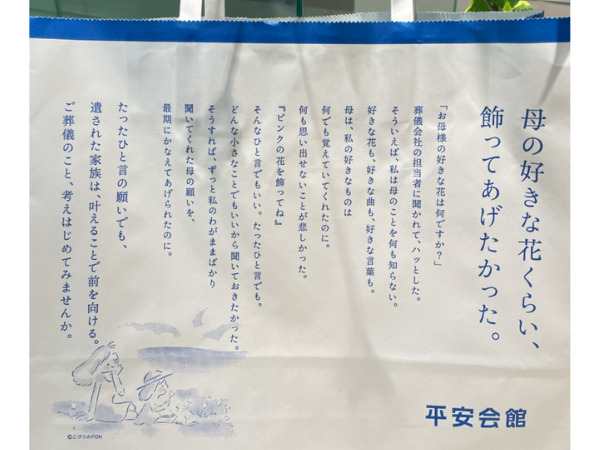 母の好きな花くらい、
飾ってあげたかった。
「お母様の好きな花は何ですか？」
葬儀会社の担当者に聞かれて、ハッとした。
そういえば、私は母のことを何も知らない。
好きな花も、好きな曲も、好きな言葉も。
母は、私の好きなものは
何でも覚えていてくれたのに。
何も思い出せないことが悲しかった。
『ピンクの花を飾ってね』
そんなひと言でもいい。たったひと言でも。
どんな小さなことでもいいから聞いておきたかった。
そうすれば、ずっと私のわがままばかり
聞いてくれた母の願いを、
最期にかなえてあげられたのに。
たったひと言の願いでも、
遺された家族は、叶えることで前を向ける。
ご葬儀のこと、考えはじめてみませんか。
平安会館
©こづつみPON